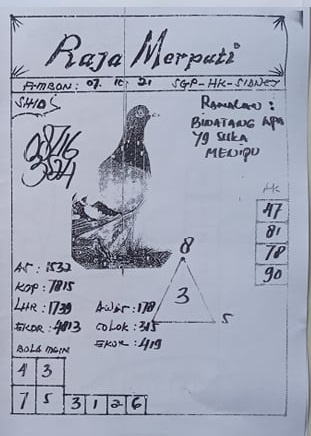 Raja Merpati
AMBON: 07. 10. 21 SGP-HK-SIDNEY
SHIO
Ramalan:
BINATANG APA
Yg SUKA
MENIPU
HK
47
81
78
90
8
3
5
AS: 1532
KOP: 7815
LHR: 1739
EKOR: 4813
AWAS: 178
COLOK: 315
EKOR: 419
BOLA MAIN
4 3
7 5 3 1 2 6